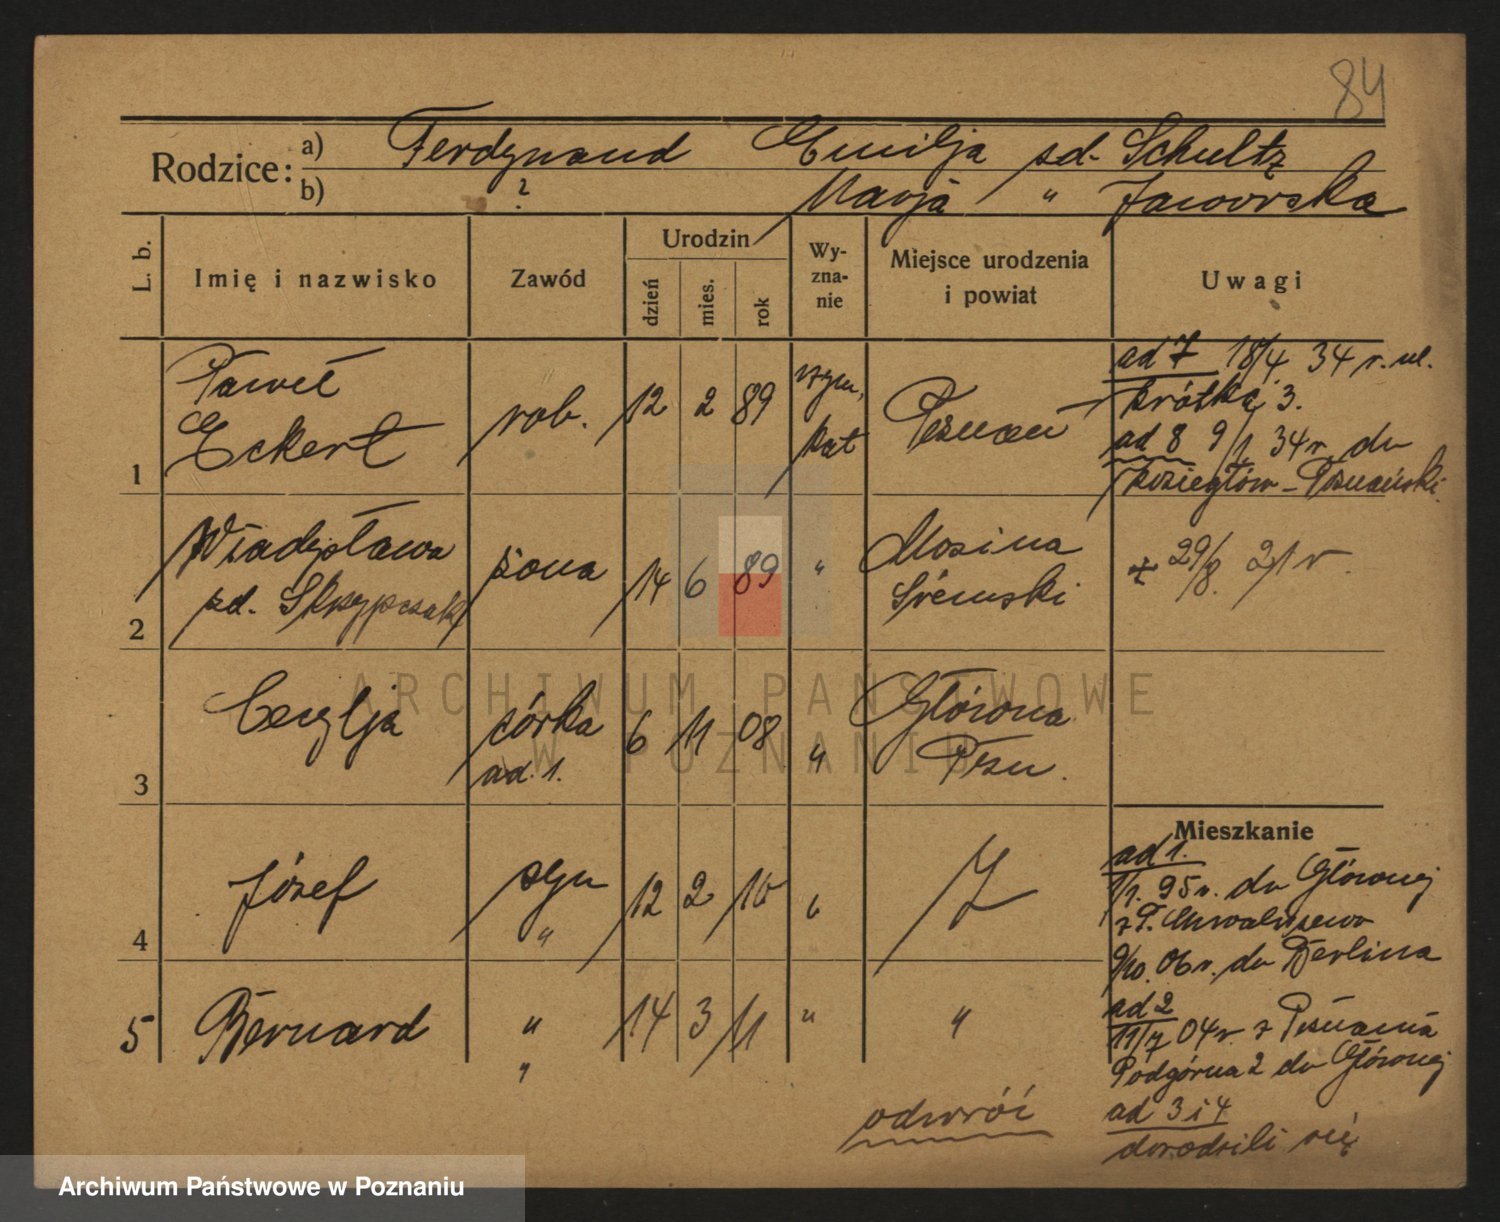 84
Rodzice: a) Ferdynand Emilja zd. Schultz
b) ? Marja " Jaworska
L. b. Imię i nazwisko Zawód Urodzin dzień mies. rok Wyznanie Miejsce urodzenia i powiat Uwagi
1 Paweł Eckert rob. 12 2 89 rzym. kat Poznań
ad 7 18/4 34 r. ul.
Krótka 3.
ad 8 9/1 34 r. do
Koziegłów - Poznański
2 Władysława zd. Skrzypczak żona 14 6 89 " Mosina Śremski + 29/8. 21 r.
3 Cecylja córka ad. 1. 6 11 08 " Główna Pozn.
4 Józef syn " 12 2 10 "
5 Bernard " " 14 3 11 " "
Mieszkanie
ad 1.
1/1. 95 r. do Głównej
z P. Chwaliszewo
9/10. 06 r. do Berlina
ad 2
11/7 04 r. z Poznania
Podgórna 2 do Głównej
ad 3 i 4
dorodzili się
odwróć
ARCHIWUM PAŃSTWOWE
W POZNANIU
Archiwum Państwowe w Poznaniu